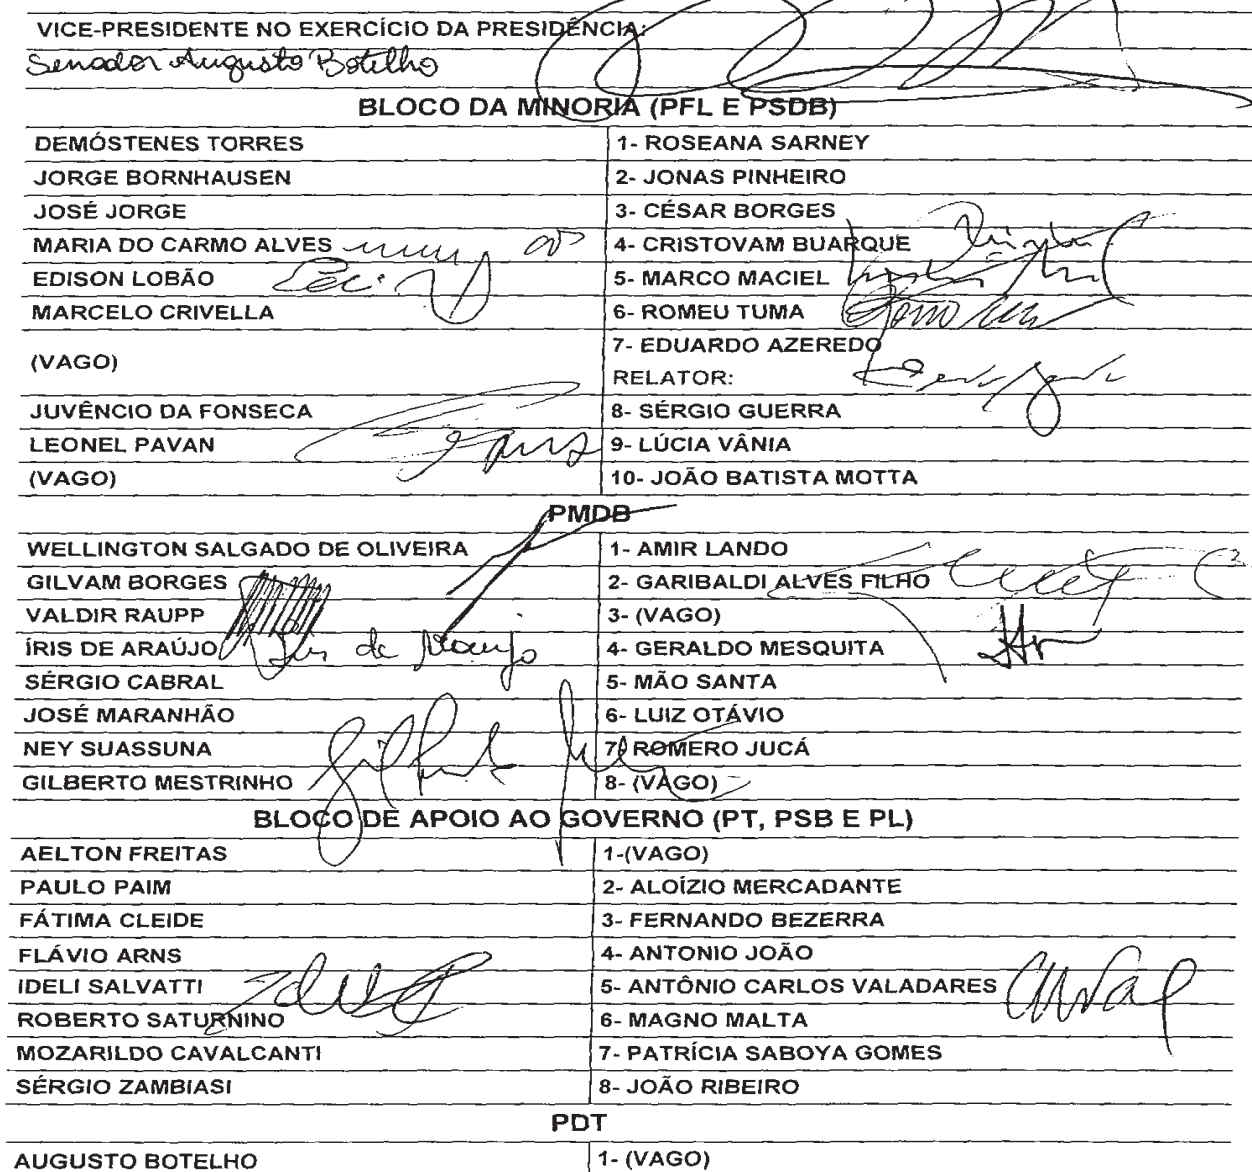 VICE-PRESIDENTE NO EXERCÍCIO DA PRESIDÊNCIA:
Senador Augusto Botelho
BLOCO DA MINORIA (PFL E PSDB)
DEMÓSTENES TORRES 1- ROSEANA SARNEY
JORGE BORNHAUSEN 2- JONAS PINHEIRO
JOSÉ JORGE 3- CÉSAR BORGES
MARIA DO CARMO ALVES 4- CRISTOVAM BUARQUE
EDISON LOBÃO 5- MARCO MACIEL
MARCELO CRIVELLA 6- ROMEU TUMA
(VAGO) 7- EDUARDO AZEREDO
RELATOR:
JUVÊNCIO DA FONSECA 8- SÉRGIO GUERRA
LEONEL PAVAN 9- LÚCIA VÂNIA
(VAGO) 10- JOÃO BATISTA MOTTA
PMDB
WELLINGTON SALGADO DE OLIVEIRA 1- AMIR LANDO
GILVAM BORGES 2- GARIBALDI ALVES FILHO
VALDIR RAUPP 3- (VAGO)
ÍRIS DE ARAÚJO Íris de Araujo 4- GERALDO MESQUITA
SÉRGIO CABRAL 5- MÃO SANTA
JOSÉ MARANHÃO 6- LUIZ OTÁVIO
NEY SUASSUNA 7- ROMERO JUCÁ
GILBERTO MESTRINHO Gilberto 8- (VAGO)
BLOCO DE APOIO AO GOVERNO (PT, PSB E PL)
AELTON FREITAS 1-(VAGO)
PAULO PAIM 2- ALOÍZIO MERCADANTE
FÁTIMA CLEIDE 3- FERNANDO BEZERRA
FLÁVIO ARNS 4- ANTONIO JOÃO
IDELI SALVATTI 5- ANTÔNIO CARLOS VALADARES
ROBERTO SATURNINO 6- MAGNO MALTA
MOZARILDO CAVALCANTI 7- PATRÍCIA SABOYA GOMES
SÉRGIO ZAMBIASI 8- JOÃO RIBEIRO
PDT
AUGUSTO BOTELHO 1- (VAGO)